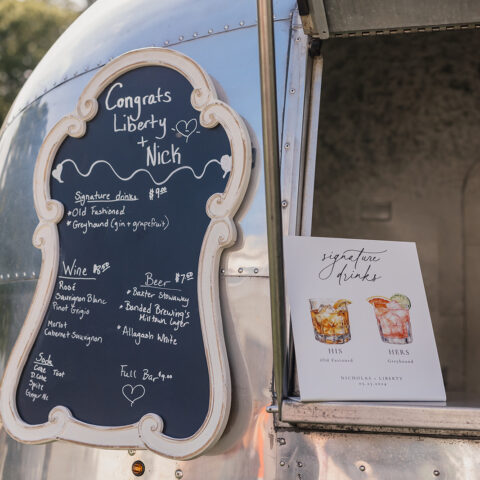 Congrats
Liberty
+
Nick
Signature drinks $9.00
• Old Fashioned
• Greyhound (gin + grapefruit)
Wine $8.50
Rosé
Sauvignon Blanc
Pinot Grigio
Merlot
Cabernet Sauvignon
Beer $7.50
• Baxter Stowaway
• Banded Brewing's
Miltown Lager
• Allagash White
Soda
Coke
D. Coke
Sprite
Ginger Ale
Full Bar $9.00
signature
drinks
HIS
Old Fashioned
HERS
Greyhound
NICHOLAS + LIBERTY